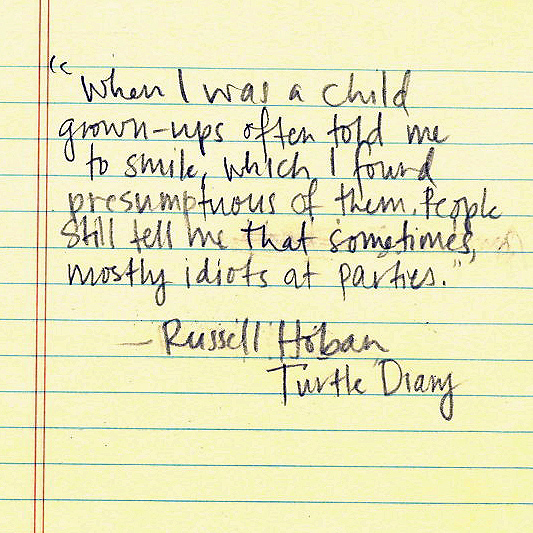 "When I was a child
grown-ups often told me
to smile, which I found
presumptuous of them. People
still tell me that sometimes,
mostly idiots at parties."
— Russell Hoban
Turtle Diary